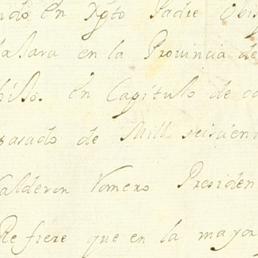 en Xpto Padre Obis
xara en la Provincia de
en Capitulo de
pasado de Mill seiscien
Calderon Romero Presiden
Refiere que en la mayor